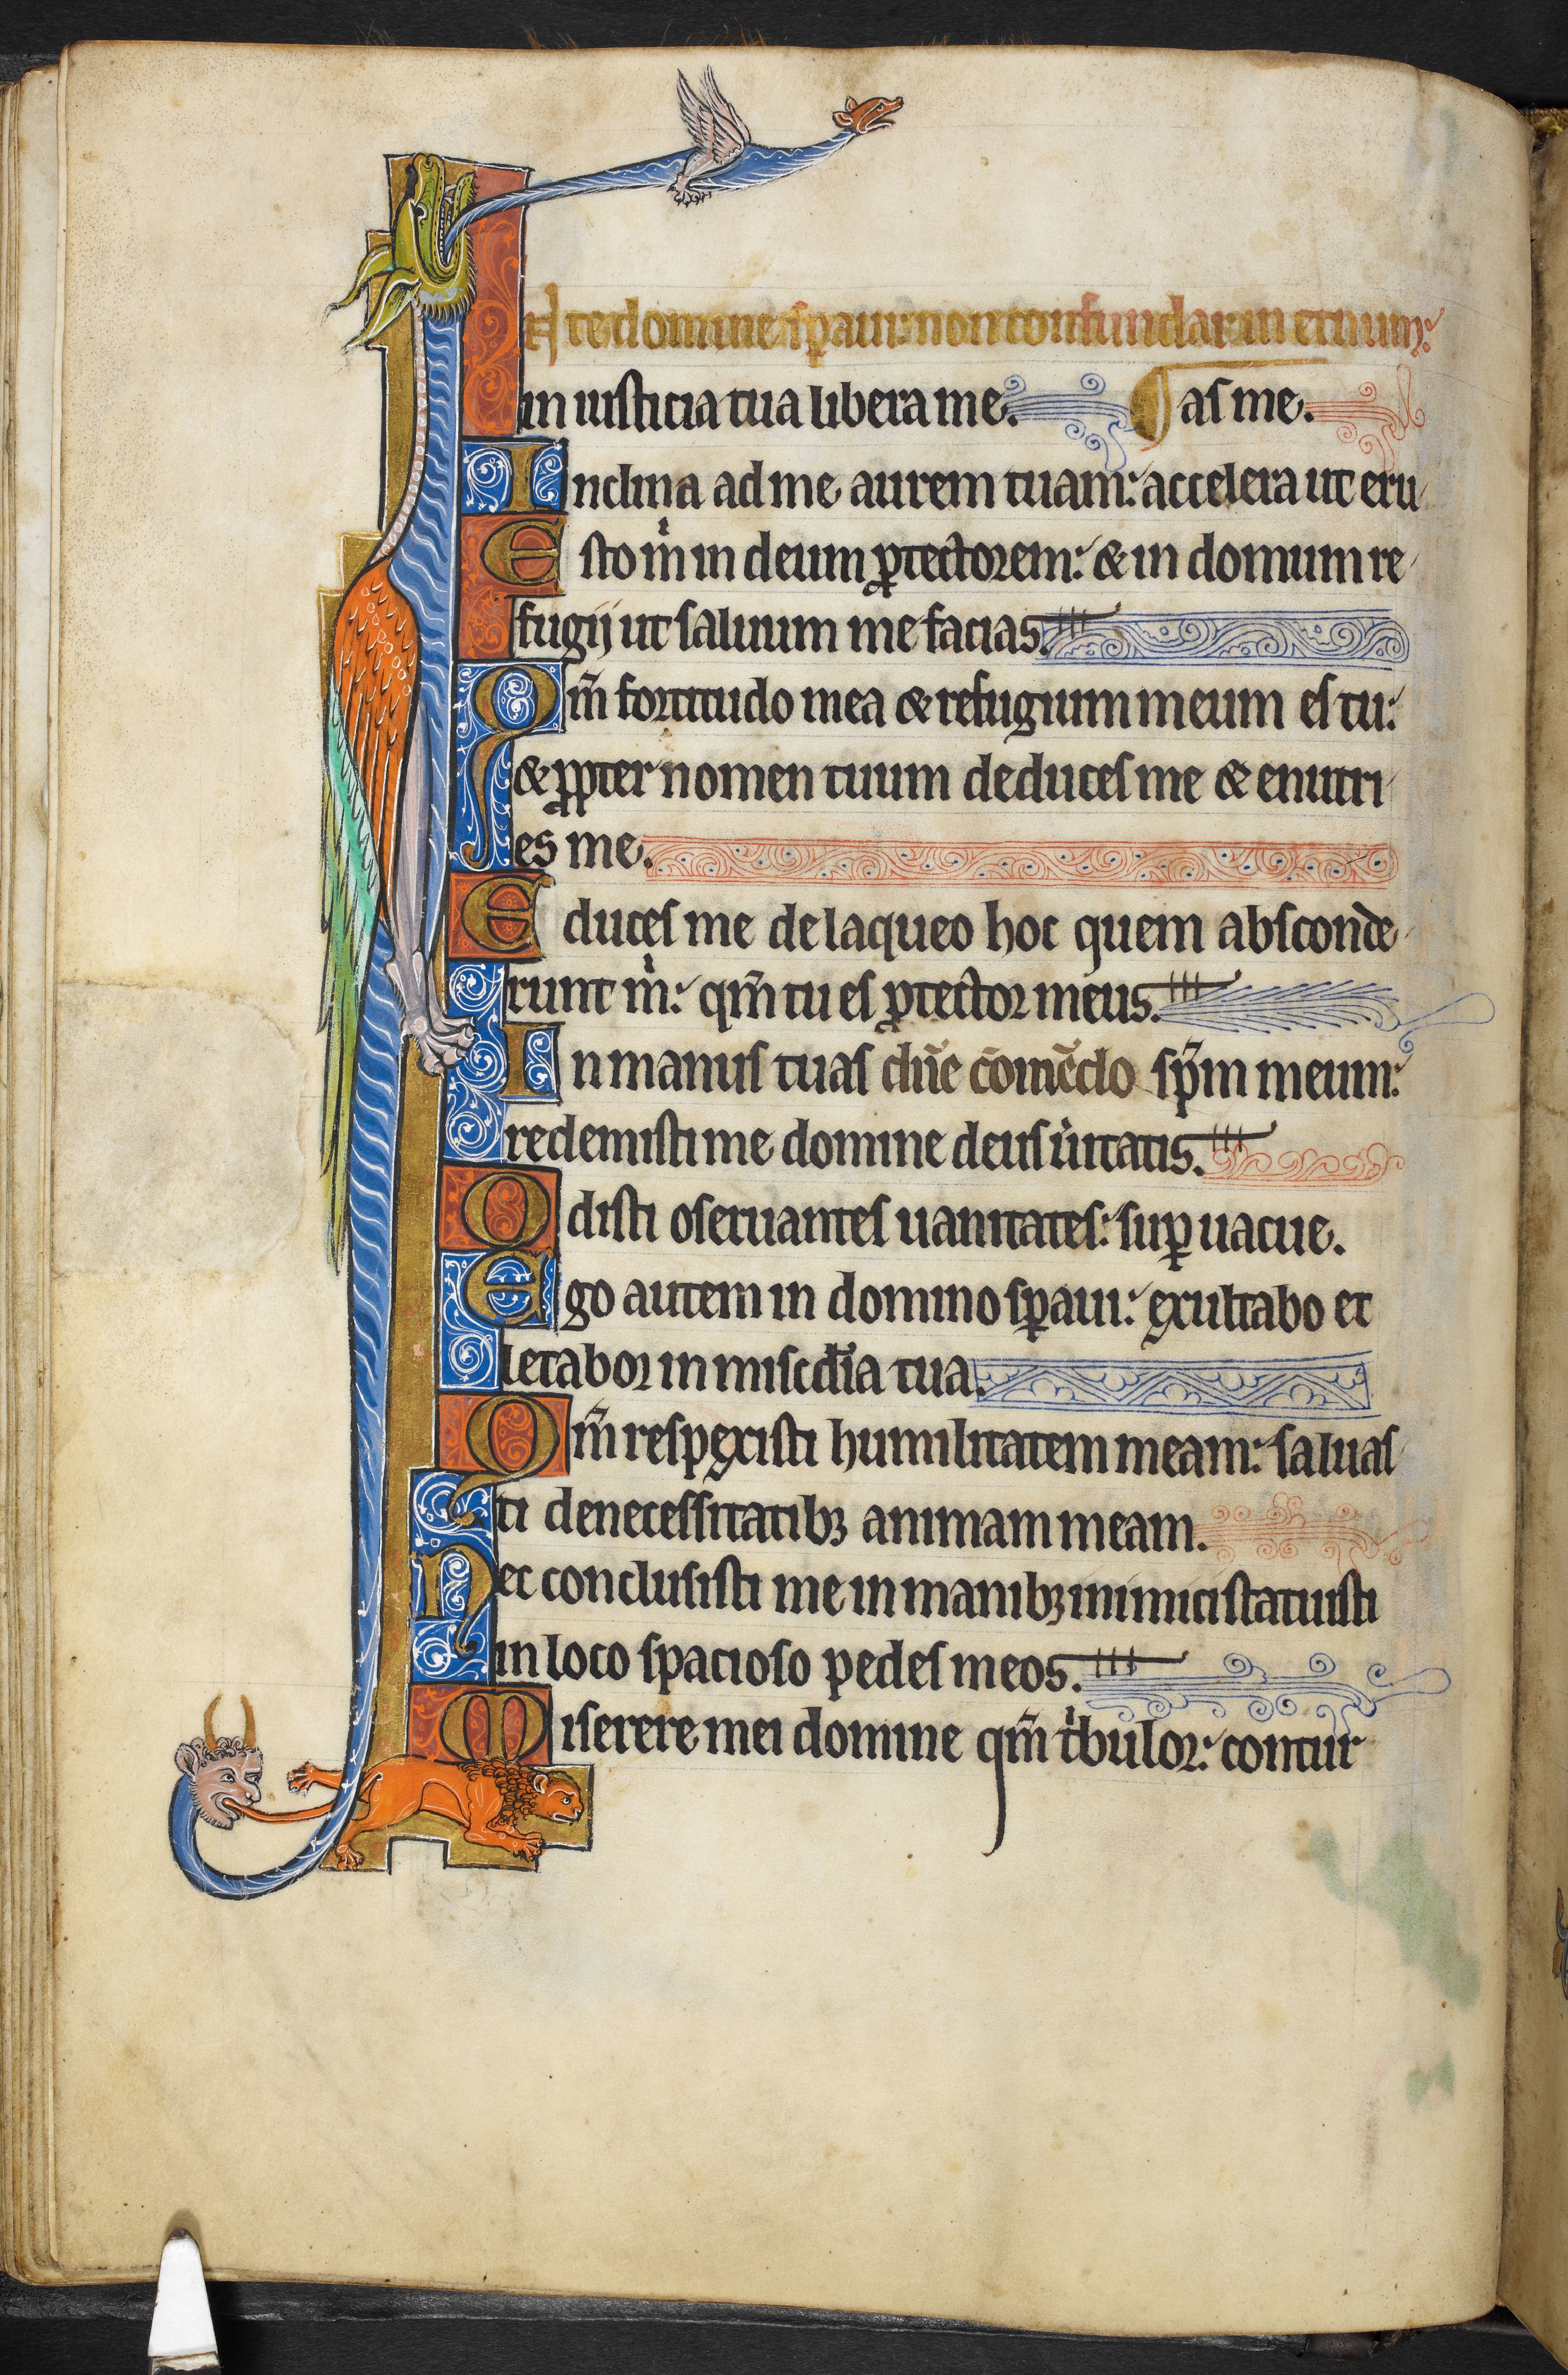 IN te domine speraui: non confundar in eternum:
in iusticia tua libera me. as me.
Inclina ad me aurem tuam: accelera ut eru
Esto mͥ in deum ꝓtectorem: & in domum re
fugij ut saluum me facias.
Qm̄ fortitudo mea & refugium meum es tu:
& ꝓpter nomen tuum deduces me & enutri
es me.
Educes me de laqueo hoc quem absconde
runt mͥ: qm̄ tu es ꝓtector meus.
In manus tuas dn̄e cōmēdo sp̄m meum:
redemisti me domine deus ůitatis.
Odisti oseruantes uanitates: suꝑuacue.
Ego autem in domino sꝑaui: exultabo et
letabor in misc̄dia tua.
Qm̄ respexisti humilitatem meam: saluas
ti de necessitatibꝫ animam meam.
Nec conclusisti me in manibꝫ inimici statuisti
in loco spacioso pedes meos.
Miserere mei domine qm̄ tͥbulor: contur